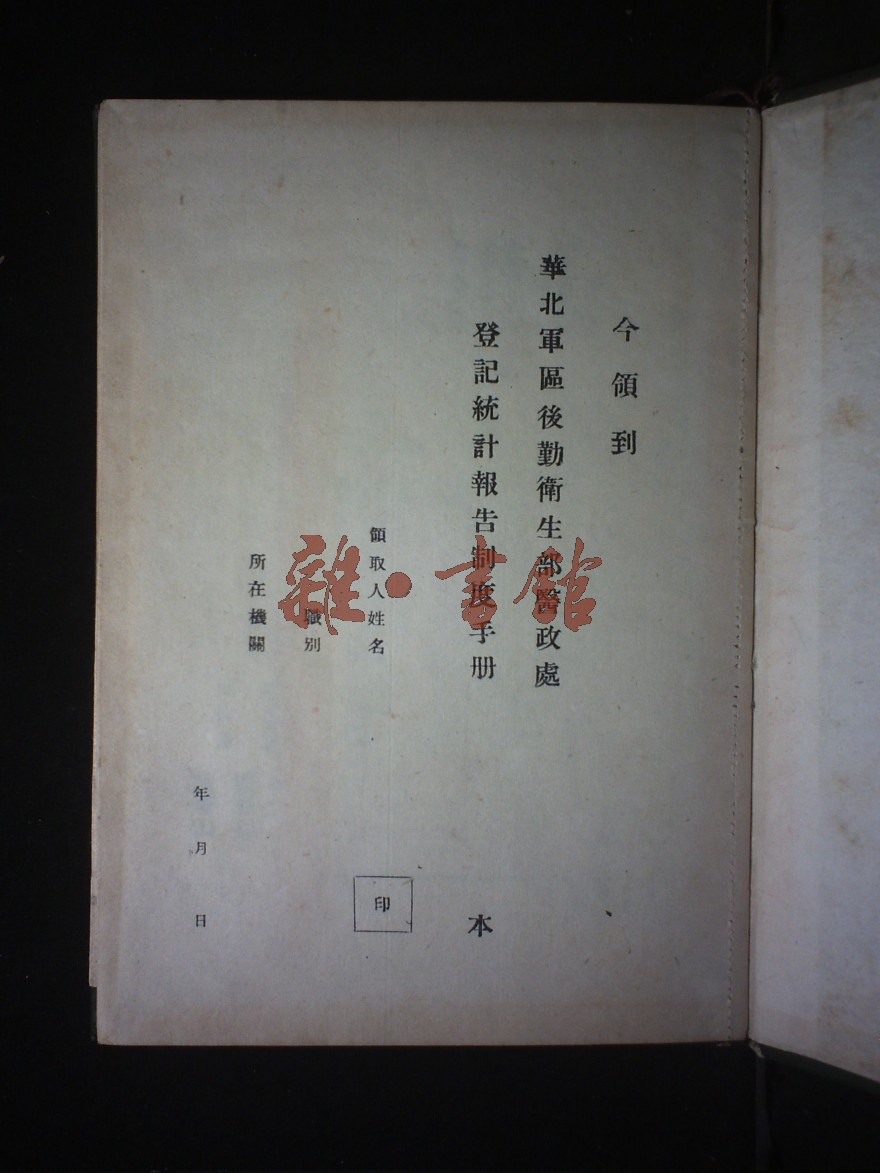 今領到
華北軍區後勤衛生部醫政處
登記統計報告制度手册
本
領取人姓名
印
職別
所在機關
年月日
雜·書館